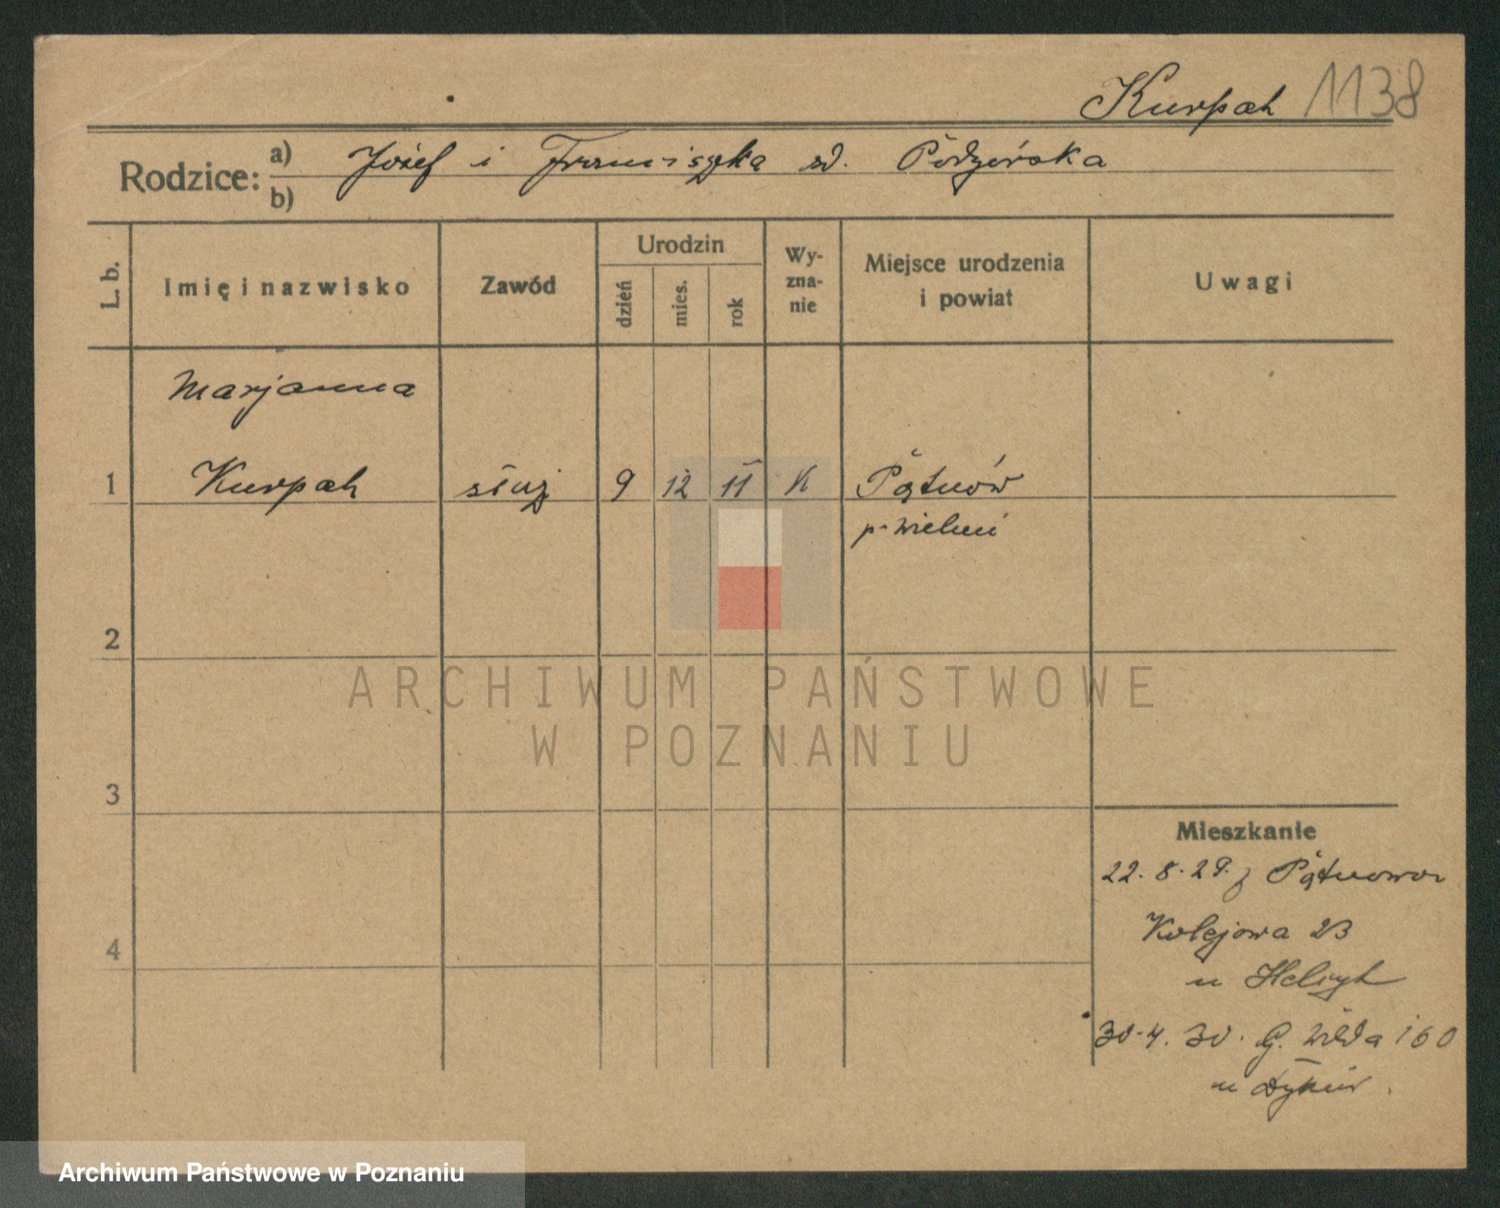 Kurpah 1138
Rodzice: a) Józef i Franciszka zd.
b)
L. b.
Imię i nazwisko
Zawód
Urodzin
dzień
mies.
rok
Wy-
zna-
nie
Miejsce urodzenia
i powiat
Uwagi
Marjanna
1 Kurpah służ 9 12 11 K Pątnów
p. Wieluń
2
3
4
Mieszkanie
22. 8. 29. z Pątnowa
Kolejowa 23
u
30. 4. 30. G. Wilda 160
u
ARCHIWUM PAŃSTWOWE
W POZNANIU
Archiwum Państwowe w Poznaniu